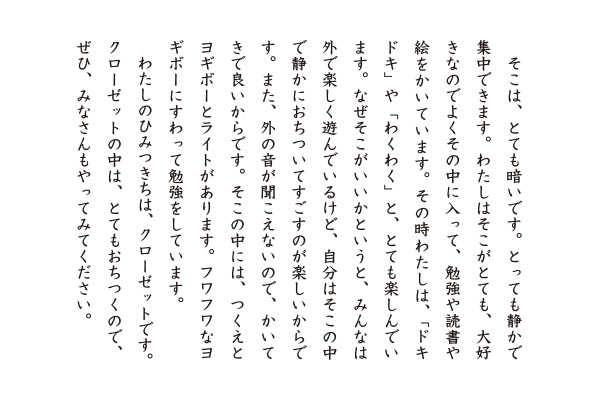 そこは、とても暗いです。とっても静かで
集中できます。わたしはそこがとても、大好
きなのでよくその中に入って、勉強や読書や
絵をかいています。その時わたしは、「ドキ
ドキ」や「わくわく」と、とても楽しんでい
ます。なぜそこがいいかというと、みんなは
外で楽しく遊んでいるけど、自分はそこの中
で静かにおちついてすごすのが楽しいからで
す。また、外の音が聞こえないので、かいて
きで良いからです。そこの中には、つくえと
ヨギボーとライトがあります。フワフワなヨ
ギボーにすわって勉強をしています。
　わたしのひみつきちは、クローゼットです。
クローゼットの中は、とてもおちつくので、
ぜひ、みなさんもやってみてください。